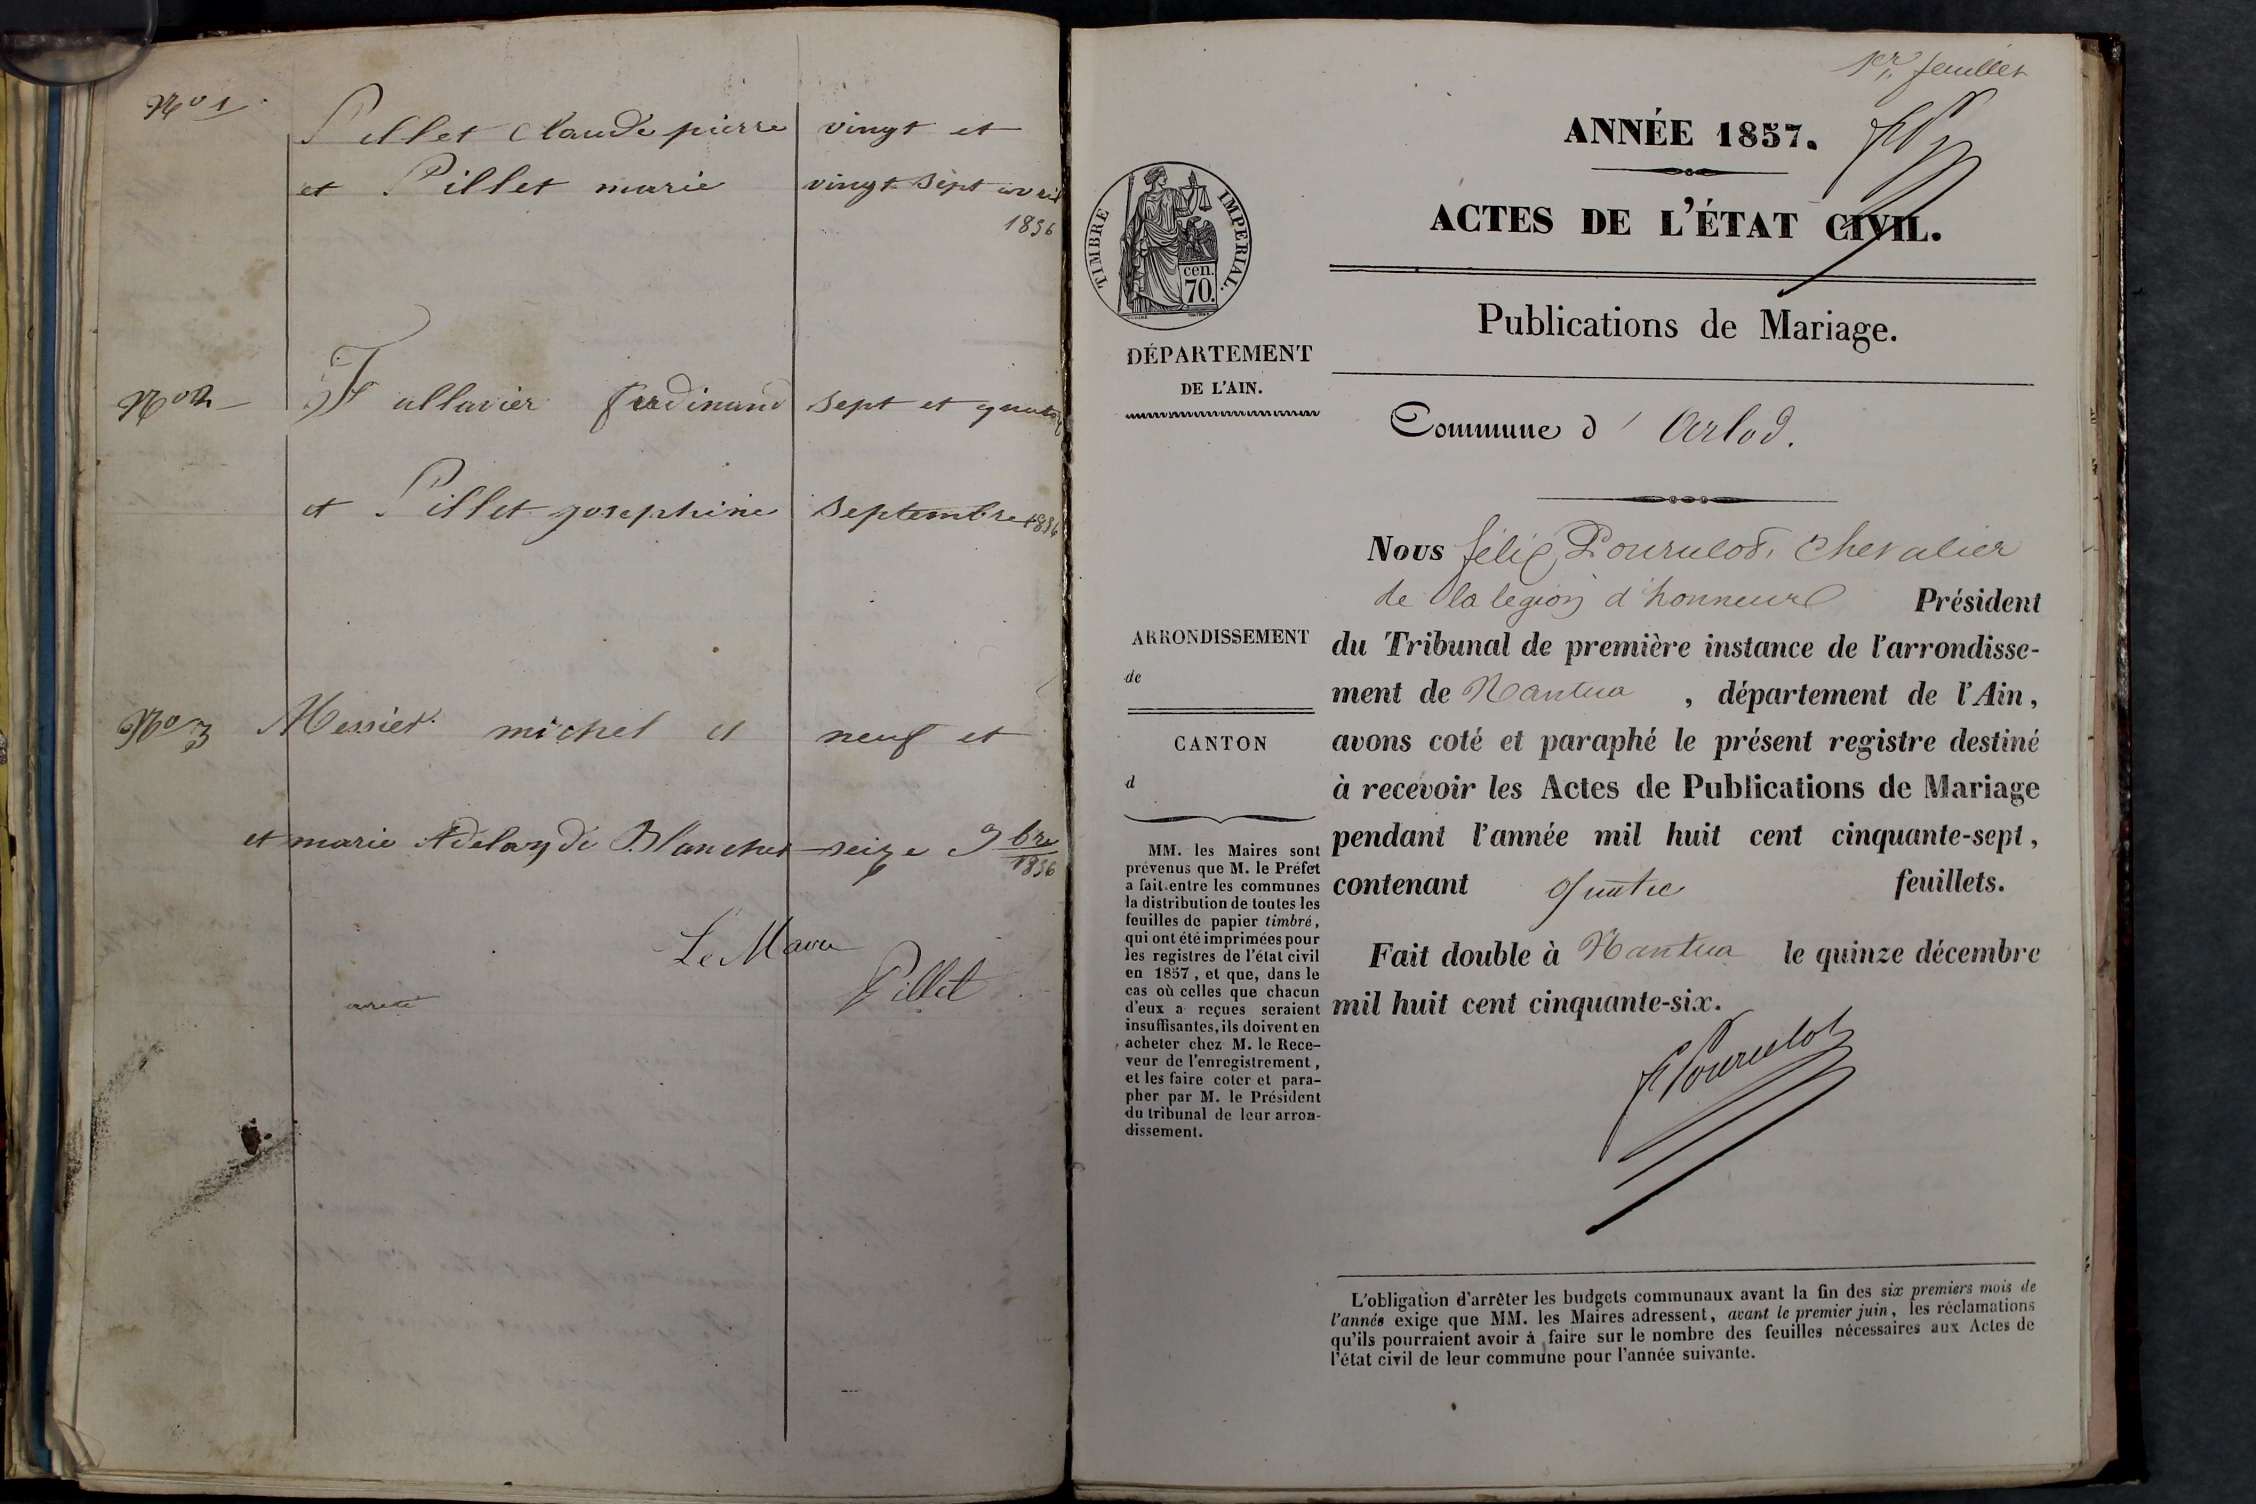 No 1
Pillet Claude pierre vingt et
et Pillet marie vingt sept avril
1856
No 2
Tallavier ferdinand sept et quatorze
et Pillet josephine septembre 1856
No 3 Messier michel et neuf et
et marie Adelayde Blanchet seize 9bre
1856
Le Maire
Pillet
arreté
1er feuillet
ANNÉE 1857.
ACTES DE L'ÉTAT CIVIL.
TIMBRE IMPÉRIAL.
cen.
70.
Publications de Mariage.
DÉPARTEMENT
DE L'AIN.
Commune d' Arlod.
Nous félix Pourulot, Chevalier
de la legion d'honneur Président
du Tribunal de première instance de l'arrondisse-
ment de Nantua, département de l'Ain,
avons coté et paraphé le présent registre destiné
à recevoir les Actes de Publications de Mariage
pendant l'année mil huit cent cinquante-sept,
contenant quatre feuillets.
Fait double à Nantua le quinze décembre
mil huit cent cinquante-six.
F Pourulot
ARRONDISSEMENT
de
CANTON
d
MM. les Maires sont
prévenus que M. le Préfet
a fait entre les communes
la distribution de toutes les
feuilles de papier timbré,
qui ont été imprimées pour
les registres de l'état civil
en 1857, et que, dans le
cas où celles que chacun
d'eux a reçues seraient
insuffisantes, ils doivent en
acheter chez M. le Rece-
veur de l'enregistrement,
et les faire coter et para-
pher par M. le Président
du tribunal de leur arron-
dissement.
L'obligation d'arrêter les budgets communaux avant la fin des six premiers mois de
l'année exige que MM. les Maires adressent, avant le premier juin, les réclamations
qu'ils pourraient avoir à faire sur le nombre des feuilles nécessaires aux Actes de
l'état civil de leur commune pour l'année suivante.